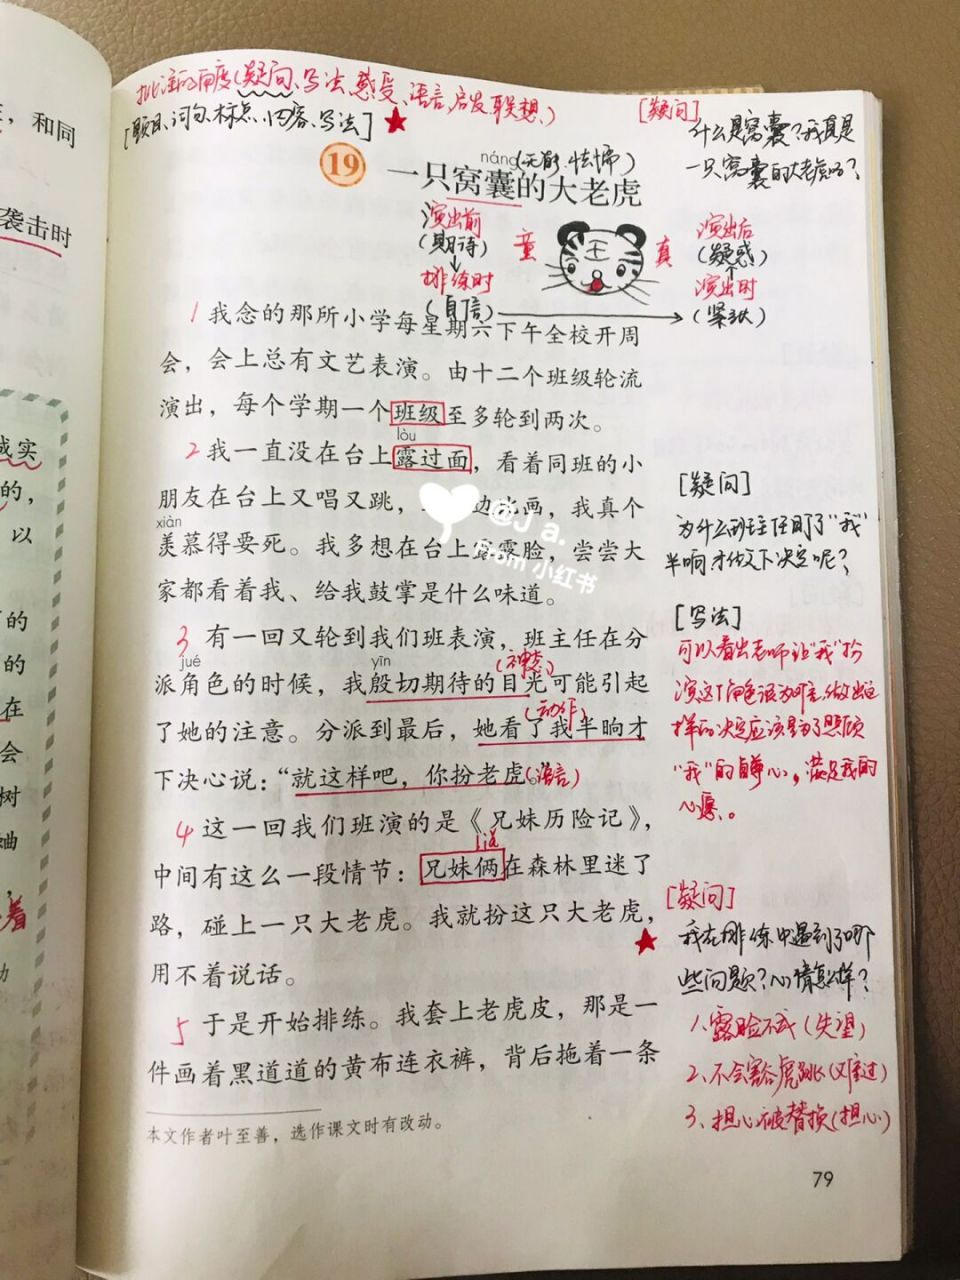 批注的角度(疑问、写法、感受、语言、启发联想、)
[题目、词句、标点、内容、写法]
[疑问]
什么是窝囊?我真是
一只窝囊的大老虎吗?
náng(无能 怯懦)
19 一只窝囊的大老虎
演出前
(期待)
排练时
(自信)
童
王
真
演出后
(疑惑)
演出时
(紧张)
1 我念的那所小学每星期六下午全校开周
会,会上总有文艺表演。由十二个班级轮流
演出,每个学期一个班级至多轮到两次。
lòu
2 我一直没在台上露过面,看着同班的小
朋友在台上又唱又跳,动光画,我真个
xiàn
羡慕得要死。我多想在台上露露脸,尝尝大
家都看着我、给我鼓掌是什么味道。
3 有一回又轮到我们班表演,班主任在分
jué yīn (神态)
派角色的时候,我殷切期待的目光可能引起
(动作)
了她的注意。分派到最后,她看了我半晌才
下决心说:“就这样吧,你扮老虎。(语言)
4 这一回我们班演的是《兄妹历险记》,
中间有这么一段情节:兄妹俩在森林里迷了
路,碰上一只大老虎。我就扮这只大老虎,
用不着说话。
5 于是开始排练。我套上老虎皮,那是一
件画着黑道道的黄布连衣裤,背后拖着一条
本文作者叶至善,选作课文时有改动。
79
[疑问]
为什么班主任盯了“我”
半晌才做下决定呢?
[写法]
可以看出老师让“我”扮
演这个角色很为难,做出这
样的决定应该是为了照顾
“我”的自尊心,满足我的
心愿。
[疑问]
我在排练中遇到了哪
些问题?心情怎么样?
1、露脸不成(失望)
2、不会豁虎跳(难过)
3、担心被替换(担心)
@J a.
From 小红书
,和同
袭击时
成实
的,
以
的
的
在
会
树
她
着